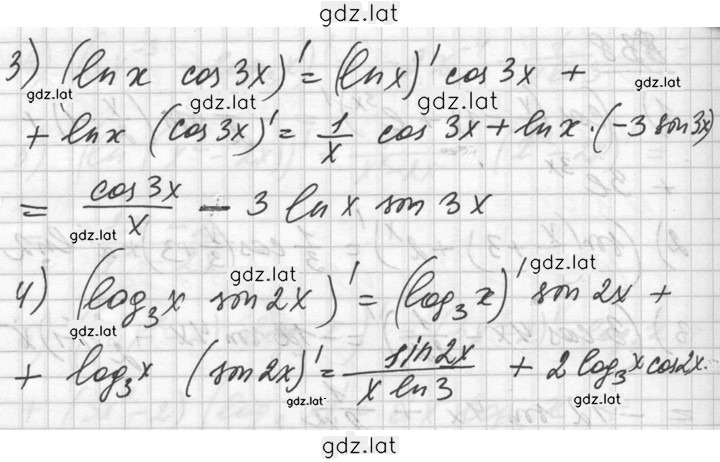 gdz.lat
3) (ln x cos 3x)' = (ln x)' cos 3x +
gdz.lat gdz.lat gdz.lat gdz.lat
+ ln x (cos 3x)' = 1/x cos 3x + ln x · (-3 sin 3x)
= cos 3x / x - 3 ln x sin 3x
gdz.lat
gdz.lat gdz.lat
4) (log₃ x sin 2x)' = (log₃ x)' sin 2x +
gdz.lat
+ log₃ x (sin 2x)' = sin 2x / x ln 3 + 2 log₃ x cos 2x.
gdz.lat gdz.lat
gdz.lat